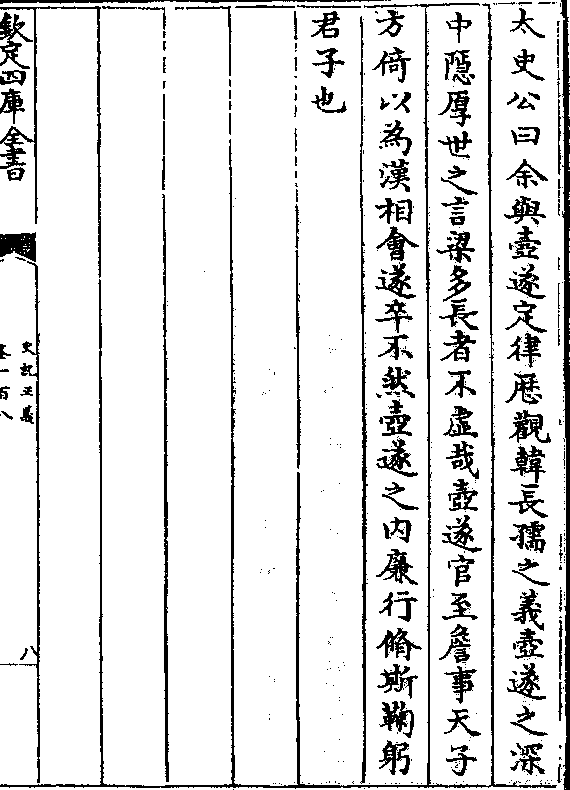 太史公曰余與壺遂定律厯觀韓長孺之義壺遂之深
中隱厚世之言梁多長者不虛哉壺遂官至詹事天子
方倚以為漢相會遂卒不然壺遂之内廉行脩斯鞠躬
君子也
欽定四庫全書
史記正義
卷一百八
八